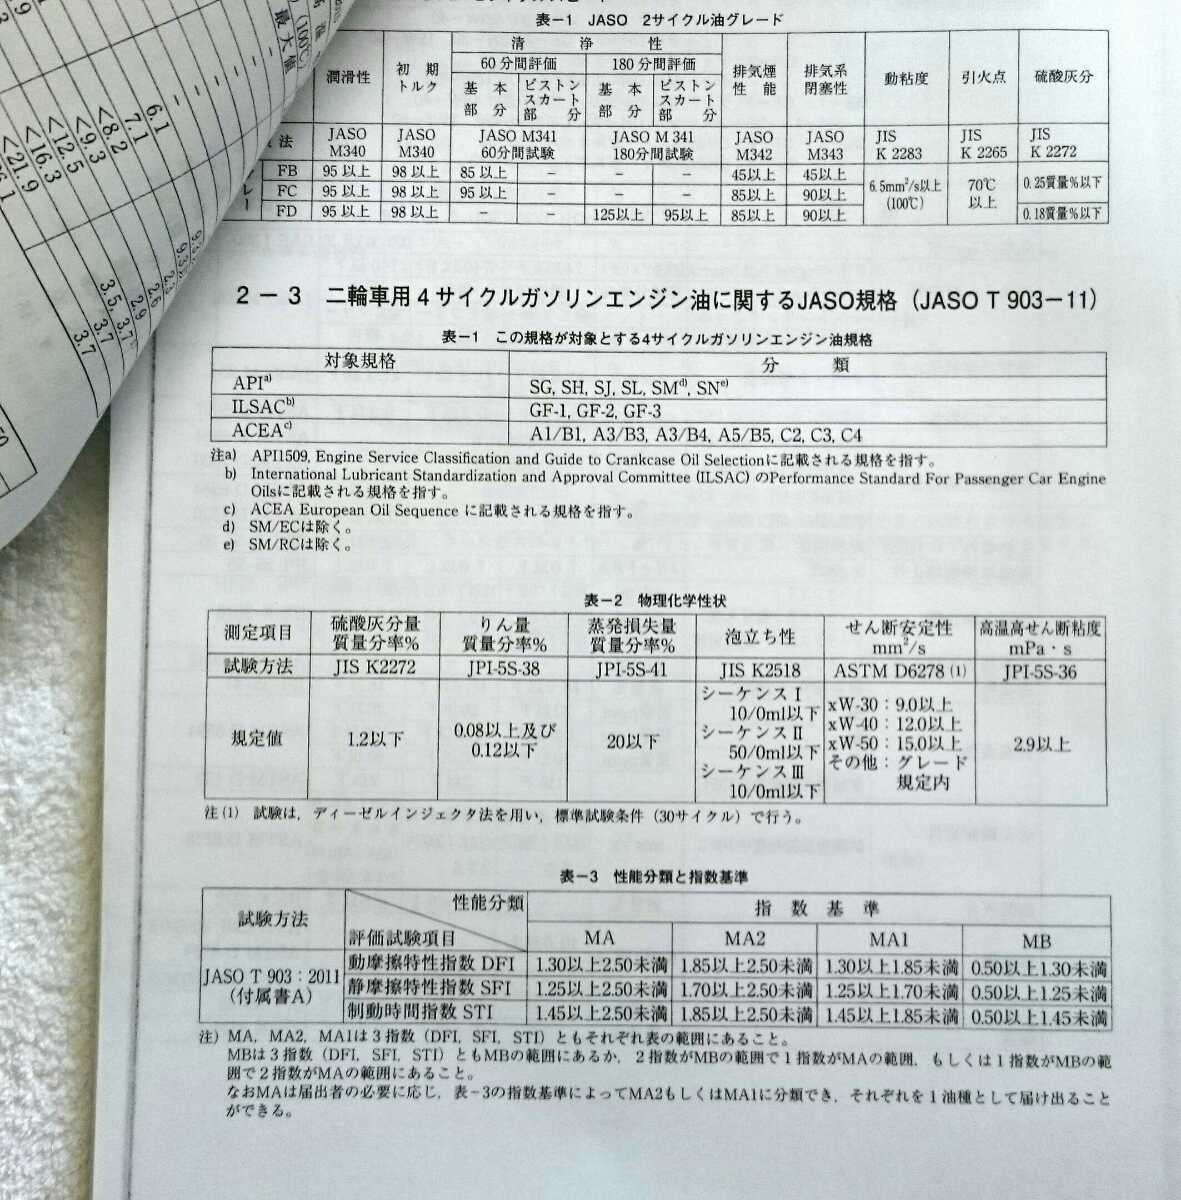 表−1 JASO 2サイクル油グレード
潤滑性 初期トルク 清浄性 排気煙性能 排気系閉塞性 動粘度 引火点 硫酸灰分
60分間評価 180分間評価
基本部分 ピストンスカート部分 基本部分 ピストンスカート部分
法 JASO M340 JASO M340 JASO M341 60分間試験 JASO M 341 180分間試験 JASO M342 JASO M343 JIS K 2283 JIS K 2265 JIS K 2272
FB 95以上 98以上 85以上 − − − 45以上 45以上 6.5mm²/s以上 (100℃) 70℃以上 0.25質量%以下
FC 95以上 98以上 95以上 − − − 85以上 90以上
FD 95以上 98以上 − − 125以上 95以上 85以上 90以上 0.18質量%以下
(100℃)
最大値
6.1
7.1
<8.2
<9.3
<12.5
<16.3
<21.9
2.6
2.9
3.5, 3.7
3.7
3.7
2−3 二輪車用4サイクルガソリンエンジン油に関するJASO規格（JASO T 903−11）
表−1 この規格が対象とする4サイクルガソリンエンジン油規格
対象規格 分類
APIa) SG, SH, SJ, SL, SMd), SNe)
ILSACb) GF-1, GF-2, GF-3
ACEAc) A1/B1, A3/B3, A3/B4, A5/B5, C2, C3, C4
注a) API1509, Engine Service Classification and Guide to Crankcase Oil Selectionに記載される規格を指す。
b) International Lubricant Standardization and Approval Committee (ILSAC) のPerformance Standard For Passenger Car Engine
Oilsに記載される規格を指す。
c) ACEA European Oil Sequence に記載される規格を指す。
d) SM/ECは除く。
e) SM/RCは除く。
表−2 物理化学性状
測定項目 硫酸灰分量 質量分率% りん量 質量分率% 蒸発損失量 質量分率% 泡立ち性 せん断安定性 mm²/s 高温高せん断粘度 mPa・s
試験方法 JIS K2272 JPI-5S-38 JPI-5S-41 JIS K2518 ASTM D6278 (1) JPI-5S-36
規定値 1.2以下 0.08以上及び0.12以下 20以下 シーケンスⅠ 10/0ml以下 シーケンスⅡ 50/0ml以下 シーケンスⅢ 10/0ml以下 xW-30：9.0以上 xW-40：12.0以上 xW-50：15.0以上 その他：グレード規定内 2.9以上
注(1) 試験は，ディーゼルインジェクタ法を用い，標準試験条件（30サイクル）で行う。
表−3 性能分類と指数基準
試験方法 性能分類 指数基準
評価試験項目 MA MA2 MA1 MB
JASO T 903：2011（付属書A） 動摩擦特性指数 DFI 1.30以上2.50未満 1.85以上2.50未満 1.30以上1.85未満 0.50以上1.30未満
静摩擦特性指数 SFI 1.25以上2.50未満 1.70以上2.50未満 1.25以上1.70未満 0.50以上1.25未満
制動時間指数 STI 1.45以上2.50未満 1.85以上2.50未満 1.45以上1.85未満 0.50以上1.45未満
注）MA，MA2，MA1は3指数（DFI，SFI，STI）ともそれぞれ表の範囲にあること。
MBは3指数（DFI，SFI，STI）ともMBの範囲にあるか，2指数がMBの範囲で1指数がMAの範囲，もしくは1指数がMBの範
囲で2指数がMAの範囲にあること。
なおMAは届出者の必要に応じ，表−3の指数基準によってMA2もしくはMA1に分類でき，それぞれを1油種として届け出ること
ができる。